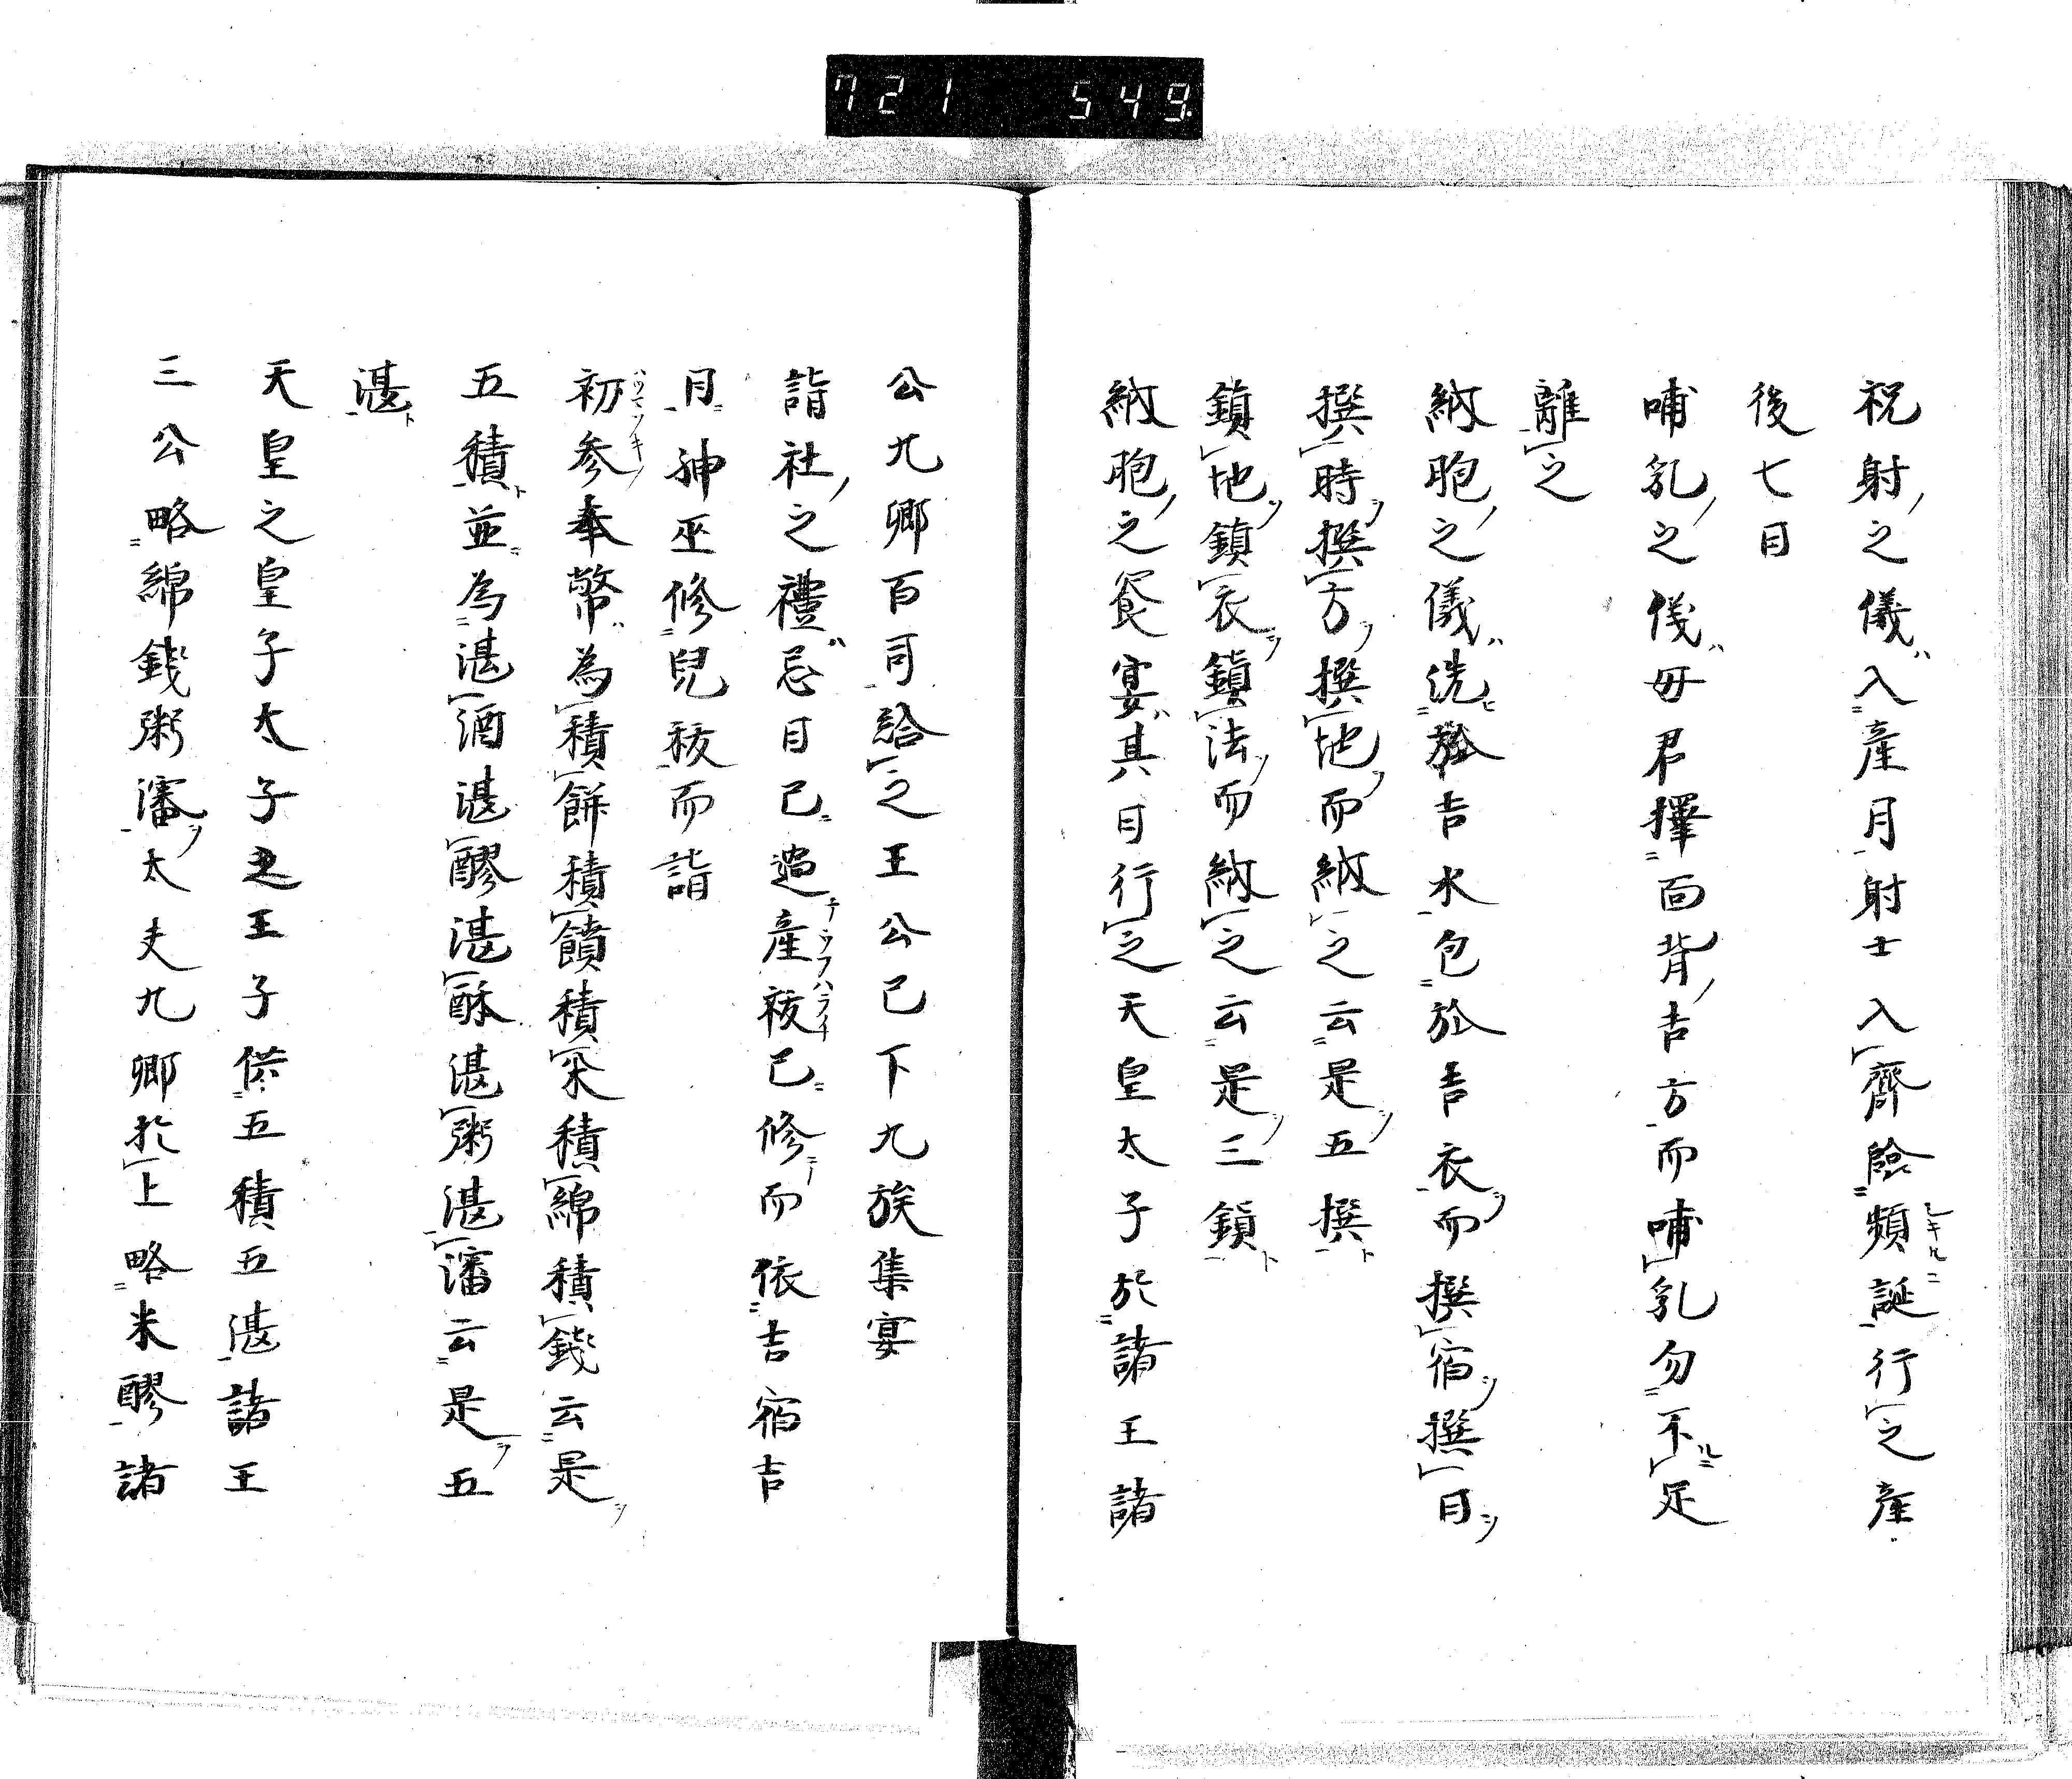 721 549
祝射之儀入產月射士入齊險頻誕行之產
後七日
哺乳之儀毋君擇面背吉方而哺乳勿不足
離之
納胞之儀洗於吉水包於吉衣而撰宿撰日
撰時撰方撰地而納之云是五撰
鎮地鎮衣鎮法而納之云是三鎮
納胞之飡宴其日行之天皇太子於諸王諸
公九卿百司給之王公已下九族集宴
詣社之禮忌日已過產祓已修而依吉宿吉
月神巫修兒祓而詣
初参奉幣為積餅積饋積米積綿積錢云是
五積並為湛酒湛醪湛酥湛粥湛瀋云是五
湛
天皇之皇子太子之王子供五積五湛諸王
三公略綿錢粥瀋大夫九卿於上略米醪諸